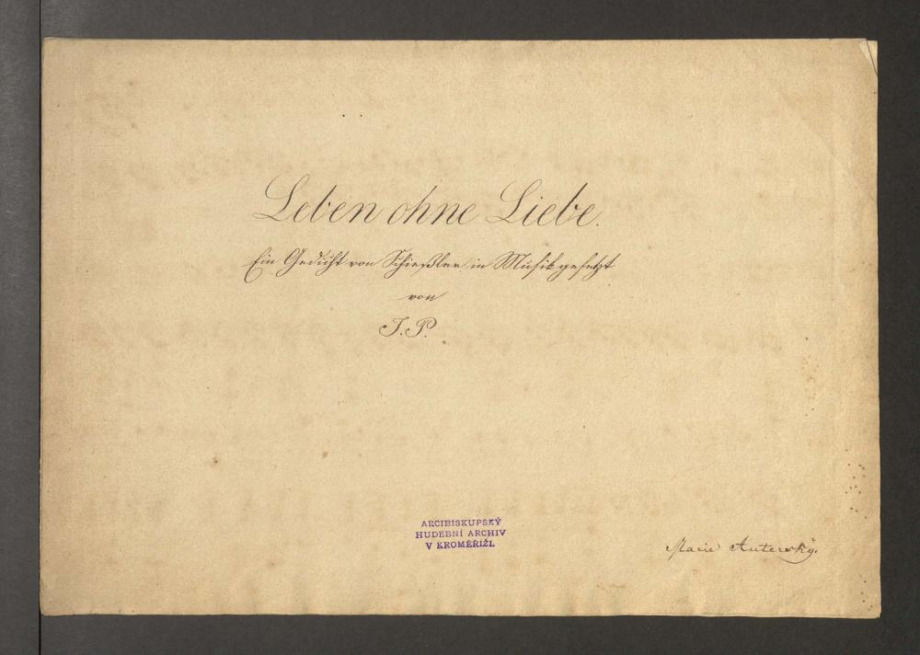 Leben ohne Liebe.
Ein Gedicht von Schießler in Musik gesetzt
von
J. P.
ARCIBISKUPSKÝ
HUDEBNÍ ARCHIV
V KROMĚŘÍŽI.
Marie